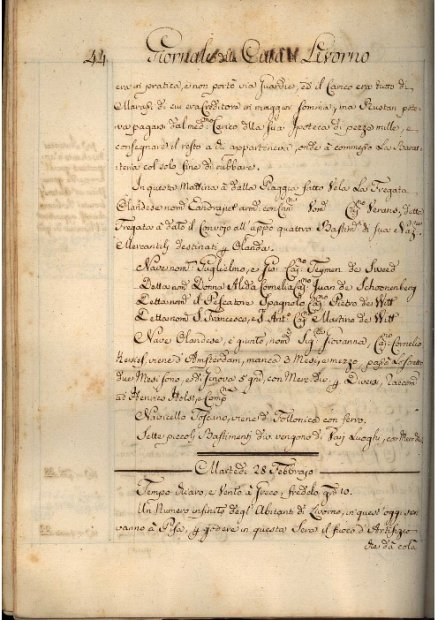 44 Giornale della Casa di Livorno
era in pratica, e non portò via Juardie, ed il Carico era tutto di
di cui era Creditore in maggior somma, ma Rustan pote
va pagarsi dal med.mo Carico della sua Ipoteca di pezze mille, e
consegnare il resto a chi apparteneva, onde à commesso la Barat
teria col solo fine di rubbare.
In questa Mattina è dalla Piaggia fatto Vela la Fregata
Olandese nom.ta arm. con Can.ni Uom. Cap. Verans, dette
Fregata à dato il Convojo all'appo quattro Bastim.ti di sua Naz.ne
Mercantili destinati p Olanda.
Nave nom. Guglielmo, e Gio: Cap. Teymen de Sweed
Detta nom. Donna Alida Cornelia Cap. Juan de Schonenberg
Detta nom. il Pescatore Spagnolo Cap. Pietro de Witt
Detta nom. S. Francesco, e S. Ant.o Cap. Martino de Witt
Nave Olandese, è giunta, nom. Sig.ra Giovanna, Cap. Cornelio
viene d' Amsterdam, manca di Mesi, e mezzo, passò
due Mesi sono, ed di Genova 8 g.ni, con Merc. div. p Diversi,
ad Henrico Holst, e Comp.
Navicello Toscano, viene di Follonica con ferro.
Sette piccoli Bastimenti div. vengono di Varj Luoghi, con
Martedì 28 Febbrajo
Tempo chiaro, e Vento à Greco, freddo gr. 10.
Un Numero infinito degl'Abitanti di Livorno, in quest'oggi sen
vanno à Pisa, p godere in questa Sera il fuoco d'Artifizio
che dà colà